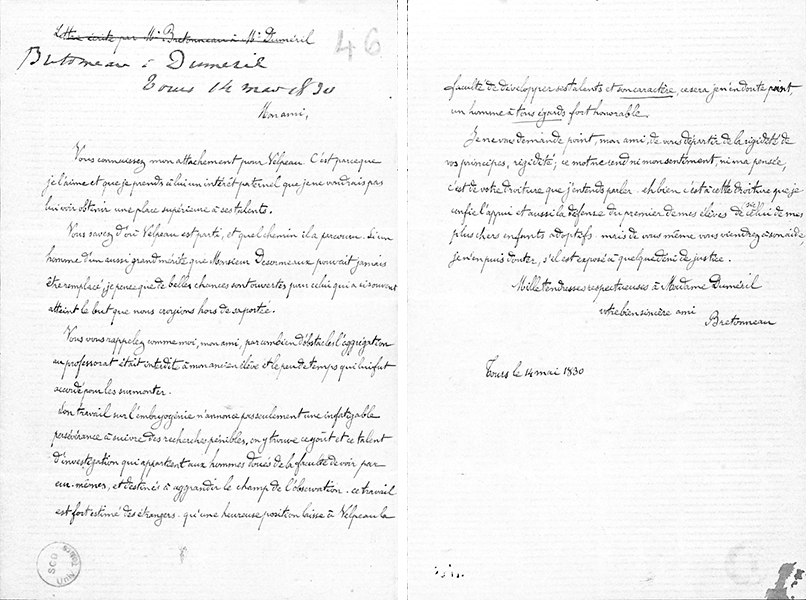 Lettre écrite par Mr Bretonneau à Mr Duméril
46
Bretonneau à Duméril
Tours 14 mai 1830
Mon ami,
Vous connaissez mon attachement pour Velpeau. C'est parceque
je l'aime et que je prends à lui un intérêt paternel que je ne voudrais pas
lui voir obtenir une place supérieure à ses talents.
Vous savez d'où Velpeau est parti, et quel chemin il a parcouru. Si un
homme d'un aussi grand mérite que Monsieur Desormeaux pouvait jamais
être remplacé, je pense que de belles chances sont ouvertes pour celui qui a si souvent
atteint le but que nous croyions hors de sa portée.
Vous vous rappelez comme moi, mon ami, par combien d'obstacles l'aggrégation
au professorat était interdite à mon ancien élève et le peu de temps qui lui fut
accordé pour les surmonter.
Son travail sur l'embryogénie n'annonce pas seulement une infatigable
persévérance à suivre des recherches pénibles, on y trouve ce goût et ce talent
d'investigation qui appartient aux hommes doués de la faculté de voir par
eux-mêmes, et destinés à aggrandir le champ de l'observation. ce travail
est fort estimé des étrangers. qu'une heureuse position laisse à Velpeau la
SCD
Univ. Tours
faculté de développer ses talents et son carractère, ce sera je n'en doute point,
un homme à tous égards fort honorable.
Je ne vous demande point, mon ami, de vous départir de la rigidité de
vos principes, rigidité; ce mot ne rend ni mon sentiment, ni ma pensée,
c'est de votre droiture que j'entends parler. eh bien c'est à cette droiture que je
confie l'appui et aussi la défense du premier de mes élèves de celui de mes
plus chers enfants adoptifs. mais de vous même vous viendrez à son aide
je n'en puis douter, s'il est exposé à quelque déni de justice.
Mille tendresses respectueuses à Madame Duméril
votre bien sincère ami
Bretonneau
Tours le 14 mai 1830